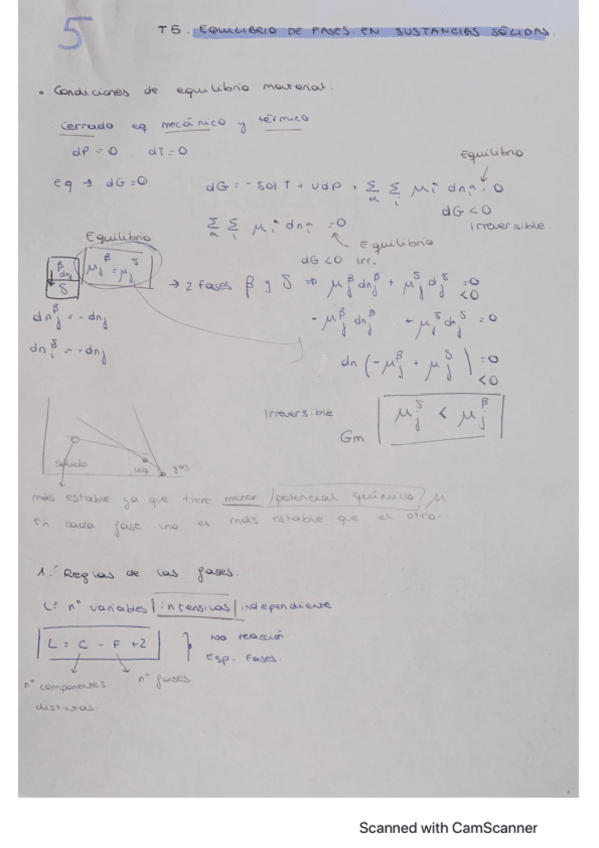 5
T5. EQUILIBRIO DE FASES EN SUSTANCIAS SÓLIDAS.
• Condiciones de equilibrio material.
Cerrado eq mecánico y térmico
dP = 0 dT = 0
Equilibrio
Eq → dG = 0 dG = - SdT + VdP + Σ Σ μi^α dni^α = 0
α i
dG < 0
irreversible.
Σ Σ μi^α dni^α = 0
α i
Equilibrio
dG < 0 irr.
Equilibrio
β
dnj
δ
μj^β = μj^δ
→ 2 fases β y δ ⇒ μj^β dnj^β + μj^δ dj^δ = 0
< 0
dnj^β = - dnj
- μj^β dnj^β + μj^δ dnj^δ = 0
dni^δ = - dnj
dn (- μj^β + μj^δ) = 0
< 0
Irreversible
μj^δ < μj^β
Gm
sólido
liq
gas
más estable ya que tiene menor potencial químico μ
En cada fase uno es más estable que el otro.
1. Reglas de las fases.
L = nº variables intensivas independiente
L = C - F + 2
No reacción
Esp. Fases.
nº componentes
distintas
nº fases
Scanned with CamScanner